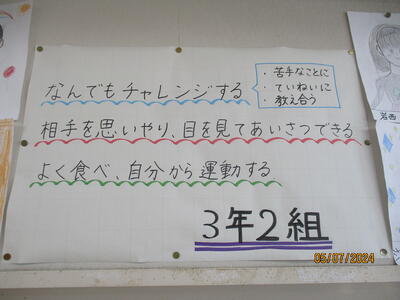 なんでもチャレンジする
・苦手なことに
・ていねいに
・教え合う
相手を思いやり、目を見てあいさつできる
よく食べ、自分から運動する
3年2組
若西
05/07/2024